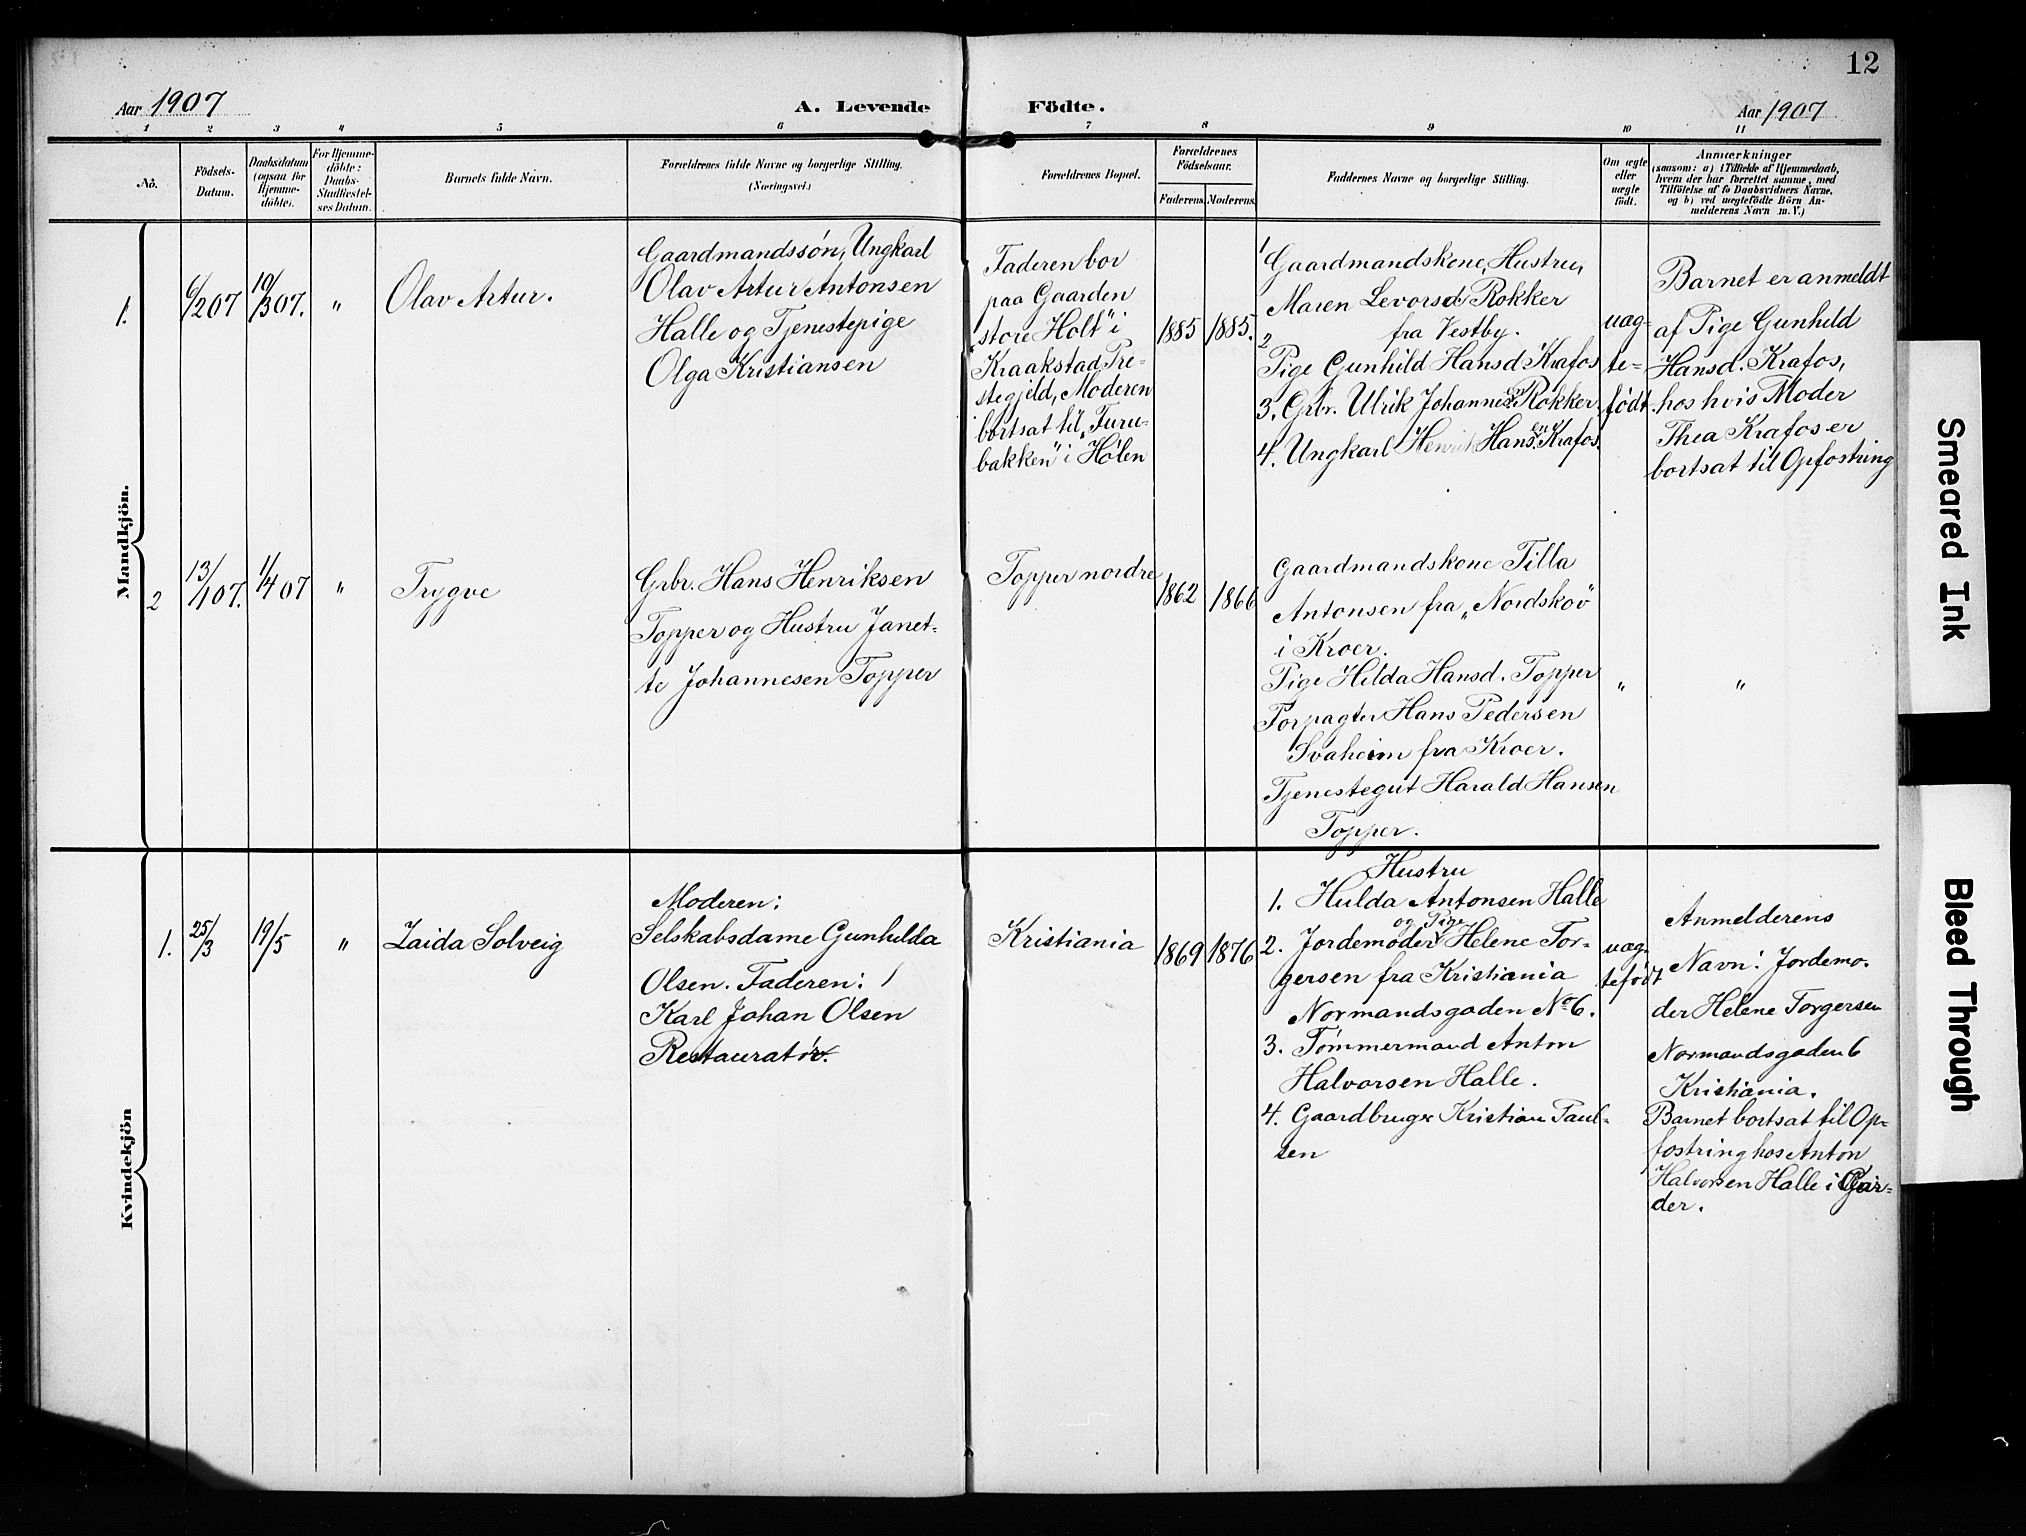 12
Aar 1907
A. Levende Födte.
Aar 1907
1 2 3 4 5 6 7 8 9 10 11
No.
Födsels-
Datum.
Daabsdatum
(ogsaa for
Hjemme-
döbte).
For Hjemme-
döbte:
Daabs-
Stadfæstel-
ses Datum.
Barnets fulde Navn.
Forældrenes fulde Navne og borgerlige Stilling.
(Næringsvei.)
Forældrenes Bopæl.
Forældrenes
Födselsaar.
Faderens. Moderens.
Faddernes Navne og borgerlige Stilling.
Om ægte
eller
uægte
födt.
Anmærkninger
(saasom: a) i Tilfælde af Hjemmedaab,
hvem der har forrettet samme, med
Tilföielse af to Daabsvidners Navne,
og b) ved uægtefödte Börn An-
melderens Navn m. V.)
Mandkjön.
1.
6/2 07
19/3 07.
"
Olav Artur.
Gaardmandssön, Ungkarl
Olav Artur Antonsen
Halle og Tjenestepige
Olga Kristiansen
Faderen bor
paa Gaarden
"store Holt" i
Kraakstad Pre-
stegjeld, Moderen
bortsat til "Furu-
bakken" i Hölen
1885
1885.
1 Gaardmandskone, Hustru,
Maren Levorsd. Rokker
fra Vestby.
2 Pige Gunhild Hansd Krafos
3. Grbr. Ulrik Johannesen Rokker
4. Ungkarl Henrik Hansen Krafos.
uæg-
te-
födt.
Barnet er anmeldt
af Pige Gunhild
Hansd. Krafos,
hos hvis Moder
Thea Krafos er
bortsat til Opfostring
2
13/1 07.
1/4 07
"
Trygve
Grbr. Hans Henriksen
Topper og Hustru Janet-
te Johannesen Topper
Topper nordre
1862
1866
Gaardmandskone Tilla
Antonsen fra "Nordskov"
i Kroer.
Pige Hilda Hansd. Topper
Forpagter Hans Pedersen
Svaheim fra Kroer.
Tjenestegut Harald Hansen
Topper.
"
"
Kvindekjön
1.
25/3
19/5
"
Zaida Solveig
Moderen:
Selskabsdame Gunhilda
Olsen. Faderen:
Karl Johan Olsen
Restauratör.
Kristiania
1869
1876
Hustru
1. Hulda Antonsen Halle
og Pige
2. Jordemoder Helene Tor-
gersen fra Kristiania
Normandsgaden No 6.
3. Tömmermand Anton
Halvorsen Halle.
4. Gaardbruger Kristian Paul-
sen
uæg-
tefödt
Anmelderens
Navn: Jordemo-
der Helene Torgersen
Normandsgaden 6
Kristiania.
Barnet bortsat til Op-
fostring hos Anton
Halvorsen Halle i Gar-
der.
Smeared Ink
Bleed Through